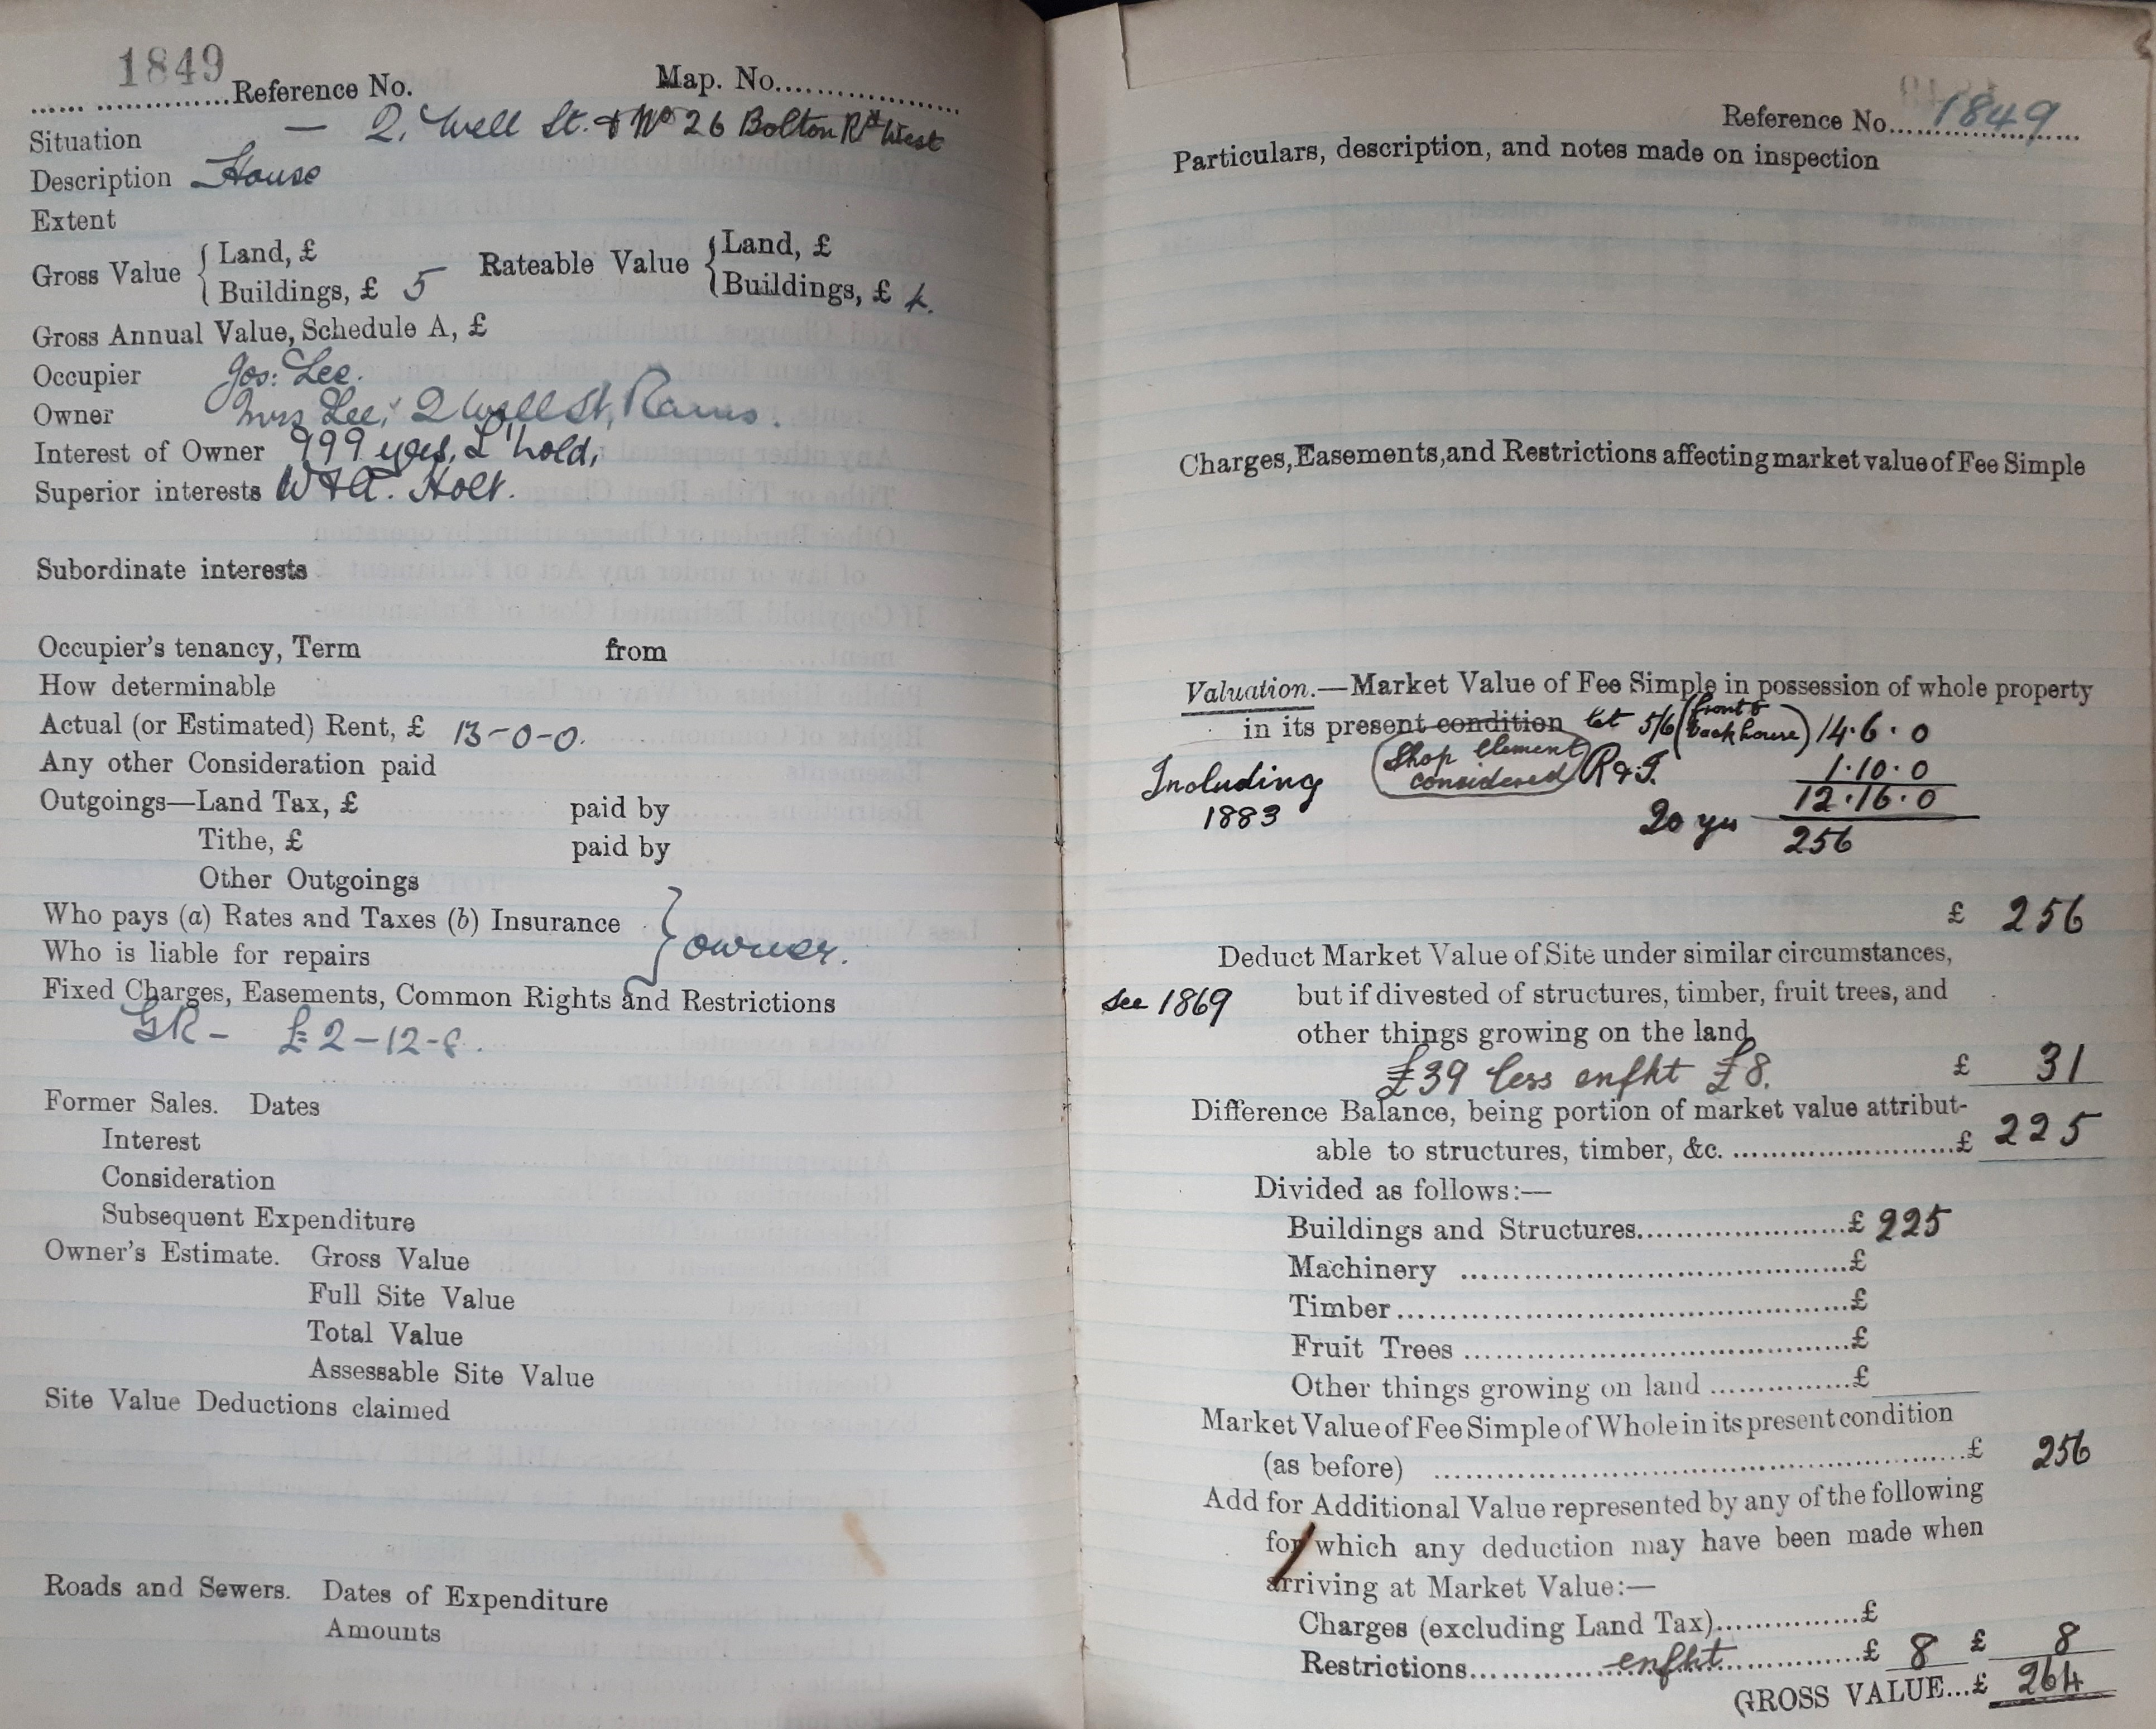 1849 Reference No. Map. No.
Situation — 2, Well St. & No 26 Bolton Rd West
Description House
Extent
Gross Value { Land, £ Rateable Value { Land, £
Buildings, £ 5 Buildings, £ 4.
Gross Annual Value, Schedule A, £
Occupier Jos: Lee.
Owner Mrs Lee, 2 Well St, Rams.
Interest of Owner 999 yrs. L'hold,
Superior interests W & A. Holt.
Subordinate interests
Occupier's tenancy, Term from
How determinable
Actual (or Estimated) Rent, £ 13-0-0.
Any other Consideration paid
Outgoings—Land Tax, £ paid by
Tithe, £ paid by
Other Outgoings
Who pays (a) Rates and Taxes (b) Insurance
Who is liable for repairs } owner.
Fixed Charges, Easements, Common Rights and Restrictions
GR - £2-12-8.
Former Sales. Dates
Interest
Consideration
Subsequent Expenditure
Owner's Estimate. Gross Value
Full Site Value
Total Value
Assessable Site Value
Site Value Deductions claimed
Roads and Sewers. Dates of Expenditure
Amounts
Reference No. 1849
Particulars, description, and notes made on inspection
Charges, Easements, and Restrictions affecting market value of Fee Simple
Valuation.—Market Value of Fee Simple in possession of whole property
in its present condition let 5/6 (front & back house) 14.6.0
Including 1883 Shop element considered R & I. 1.10.0
12.16.0
20 yrs
256
£ 256
Deduct Market Value of Site under similar circumstances,
see 1869 but if divested of structures, timber, fruit trees, and
other things growing on the land
£39 less enfht £8. £ 31
Difference Balance, being portion of market value attribut-
able to structures, timber, &c. £ 225
Divided as follows:—
Buildings and Structures £ 225
Machinery £
Timber £
Fruit Trees £
Other things growing on land £
Market Value of Fee Simple of Whole in its present condition
(as before) £ 256
Add for Additional Value represented by any of the following
for which any deduction may have been made when
arriving at Market Value:—
Charges (excluding Land Tax) £
Restrictions enfht £ 8 £ 8
GROSS VALUE...£ 264